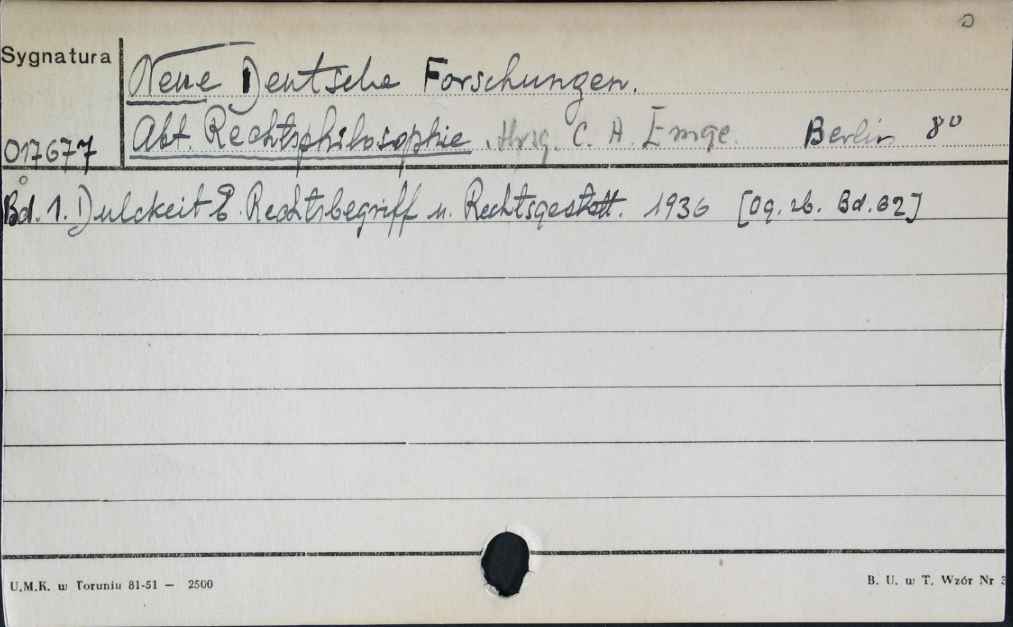 Sygnatura
Neue Deutsche Forschungen.
017677
Abt. Rechtsphilosophie. Hrsg. C. A. Emge. Berlin 8°
Bd. 1. Dulckeit G. Rechtsbegriff u. Rechtsgestalt. 1936 [Og. zb. Bd. 62]
U.M.K. w Toruniu 81-51 — 2500
B. U. w T. Wzór Nr 3